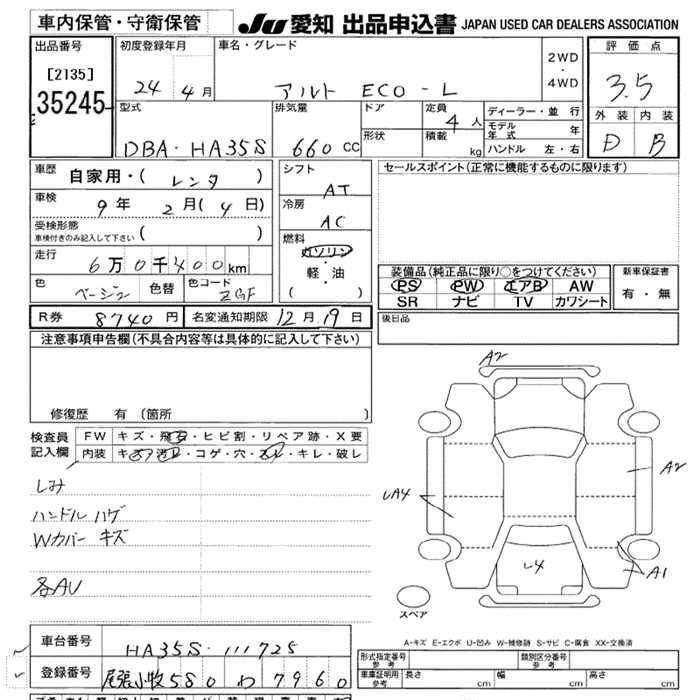 車内保管・守衛保管
JU 愛知 出品申込書 JAPAN USED CAR DEALERS ASSOCIATION
出品番号
[2135]
35245
初度登録年月
24 4月
車名・グレード
アルト ECO-L
2WD
・
4WD
評価点
3.5
外装 内装
D B
型式
DBA・HA35S
排気量
660 CC
ドア
形状
定員
4人
積載
kg
ディーラー・並行
モデル年式 年
ハンドル 左・右
車歴
自家用・( レンタ )
車検
9年 2月(4日)
受検形態
車検付きのみ記入して下さい ( )
走行
6万0千400km
色
ベージュ
色替
色コード
ZGF
シフト
AT
冷房
AC
燃料
ガソリン
・
軽・油
( )
セールスポイント(正常に機能するものに限ります)
装備品(純正品に限り○をつけてください)
PS PW エアB AW
SR ナビ TV カワシート
新車保証書
有・無
R券 8740円 名変通知期限 12月19日
後日品
注意事項申告欄(不具合内容等は具体的に記入して下さい)
修復歴 有 (箇所 )
検査員記入欄
FW キズ・飛石・ヒビ割・リペア跡・X要
内装 キズ・汚レ・コゲ・穴・スレ・キレ・破レ
しみ
ハンドル ハゲ
Wカバー キズ
各AU
A2
A2
UA4
U4
A1
スペア
A-キズ E-エクボ U-凹み W-補修跡 S-サビ C-腐食 XX-交換済
車台番号 HA35S-111725
登録番号 尾張小牧580 わ 7960
形式指定番号
参考
類別区分番号
参考
車庫証明用
参考
長さ cm 幅 cm 高さ cm